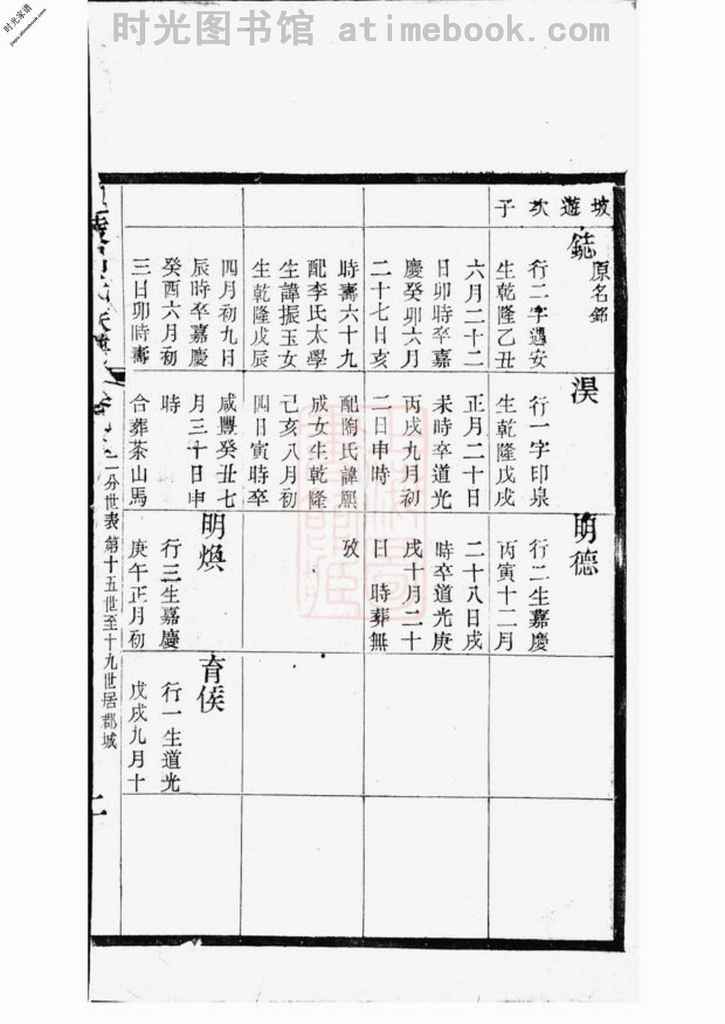 时光图书馆 atimebook.com
时光家谱
坡遊次子
鋕
原名銘
行二字遇安
生乾隆乙丑
六月二十二
日卯時卒嘉
慶癸卯六月
二十七日亥
時壽六十九
配李氏太學
生諱振玉女
生乾隆戊辰
四月初九日
辰時卒嘉慶
癸酉六月初
三日卯時壽
淏
行一字印泉
生乾隆戊戌
正月二十日
未時卒道光
丙戌九月初
二日申時
配陶氏諱熙
成女生乾隆
己亥八月初
四日寅時卒
咸豐癸丑七
月三十日申
時
合葬茶山馬
明德
行二生嘉慶
丙寅十二月
二十八日戌
時卒道光庚
戌十月二十
日 時葬無
攷
明煥
行三生嘉慶
庚午正月初
育俟
行一生道光
戊戌九月十
二分世表 第十五世至十九世居郡城
二